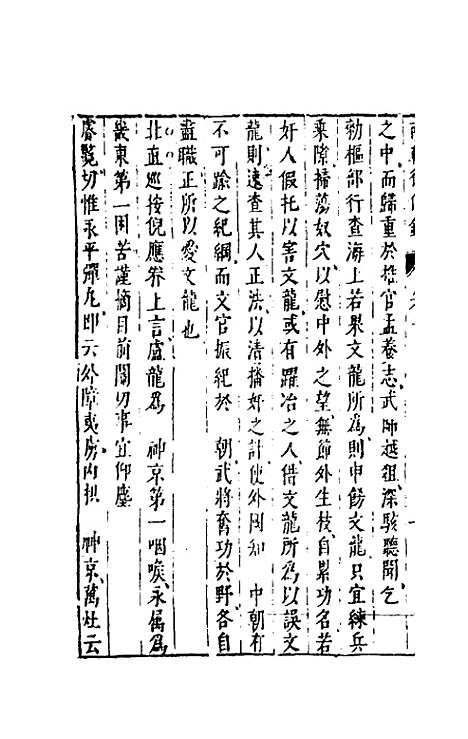 兩朝從信錄
之中而歸重於操官孟養志武師越俎深駭聽聞乞
勅樞部行查海上若果文龍所為則申飭文龍只宜練兵
乘隙掃蕩奴穴以慰中外之望無節外生枝自累功名若
奸人假托以害文龍或有躍冶之人借文龍所為以誤文
龍則速查其人正法以清播奸之計使外國知　中朝有
不可踰之紀綱而文官振紀於　朝武將奮功於野各自
盡職正所以愛文龍也
北直巡按倪應眷上言盧龍為　神京第一咽喉永屬為
畿東第一困苦謹摘目前關切事宜仰塵
睿覽切惟永平彈丸即云外障夷虜內拱　神京萬灶云